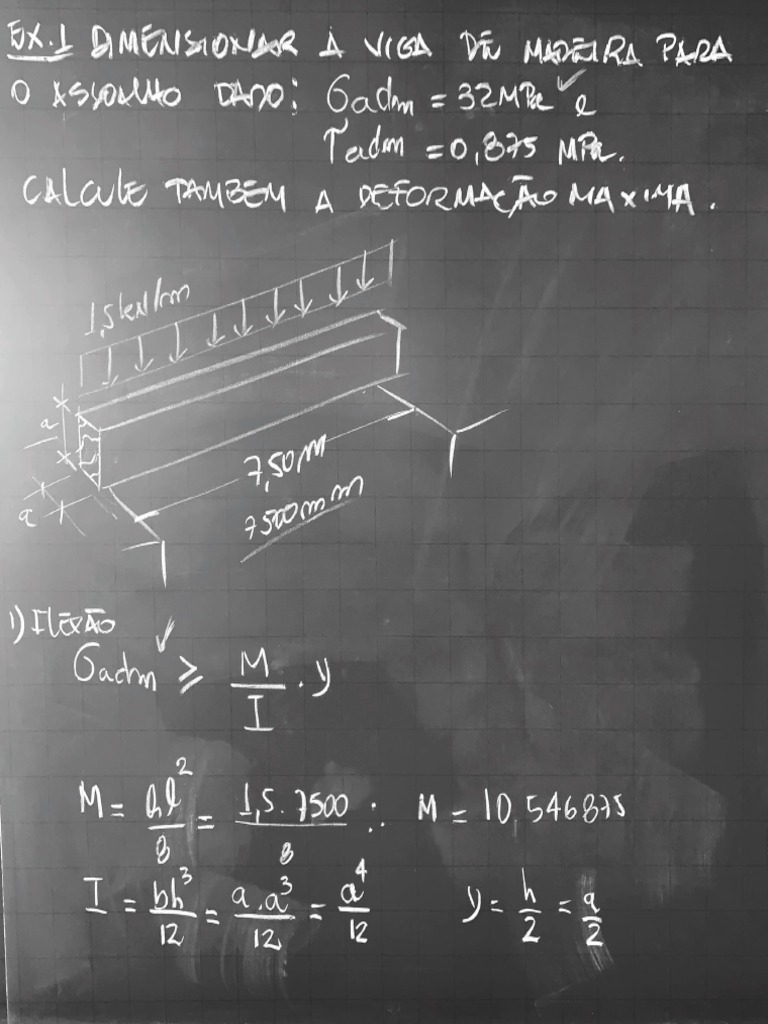 EX.1 DIMENSIONAR A VIGA DE MADEIRA PARA
O ASSOALHO DADO: σadm = 32MPa ✓ e
τadm = 0,875 MPa.
CALCULE TAMBEM A DEFORMAÇÃO MAXIMA.
1,5kN/m
a
a
7,50m
7500mm
1) FLEXÃO
σadm ✓ ≥ M/I . y
M = ql²/8 = 1,5.7500/8 ∴ M = 10.546875
I = bh³/12 = a.a³/12 = a⁴/12 y = h/2 = a/2